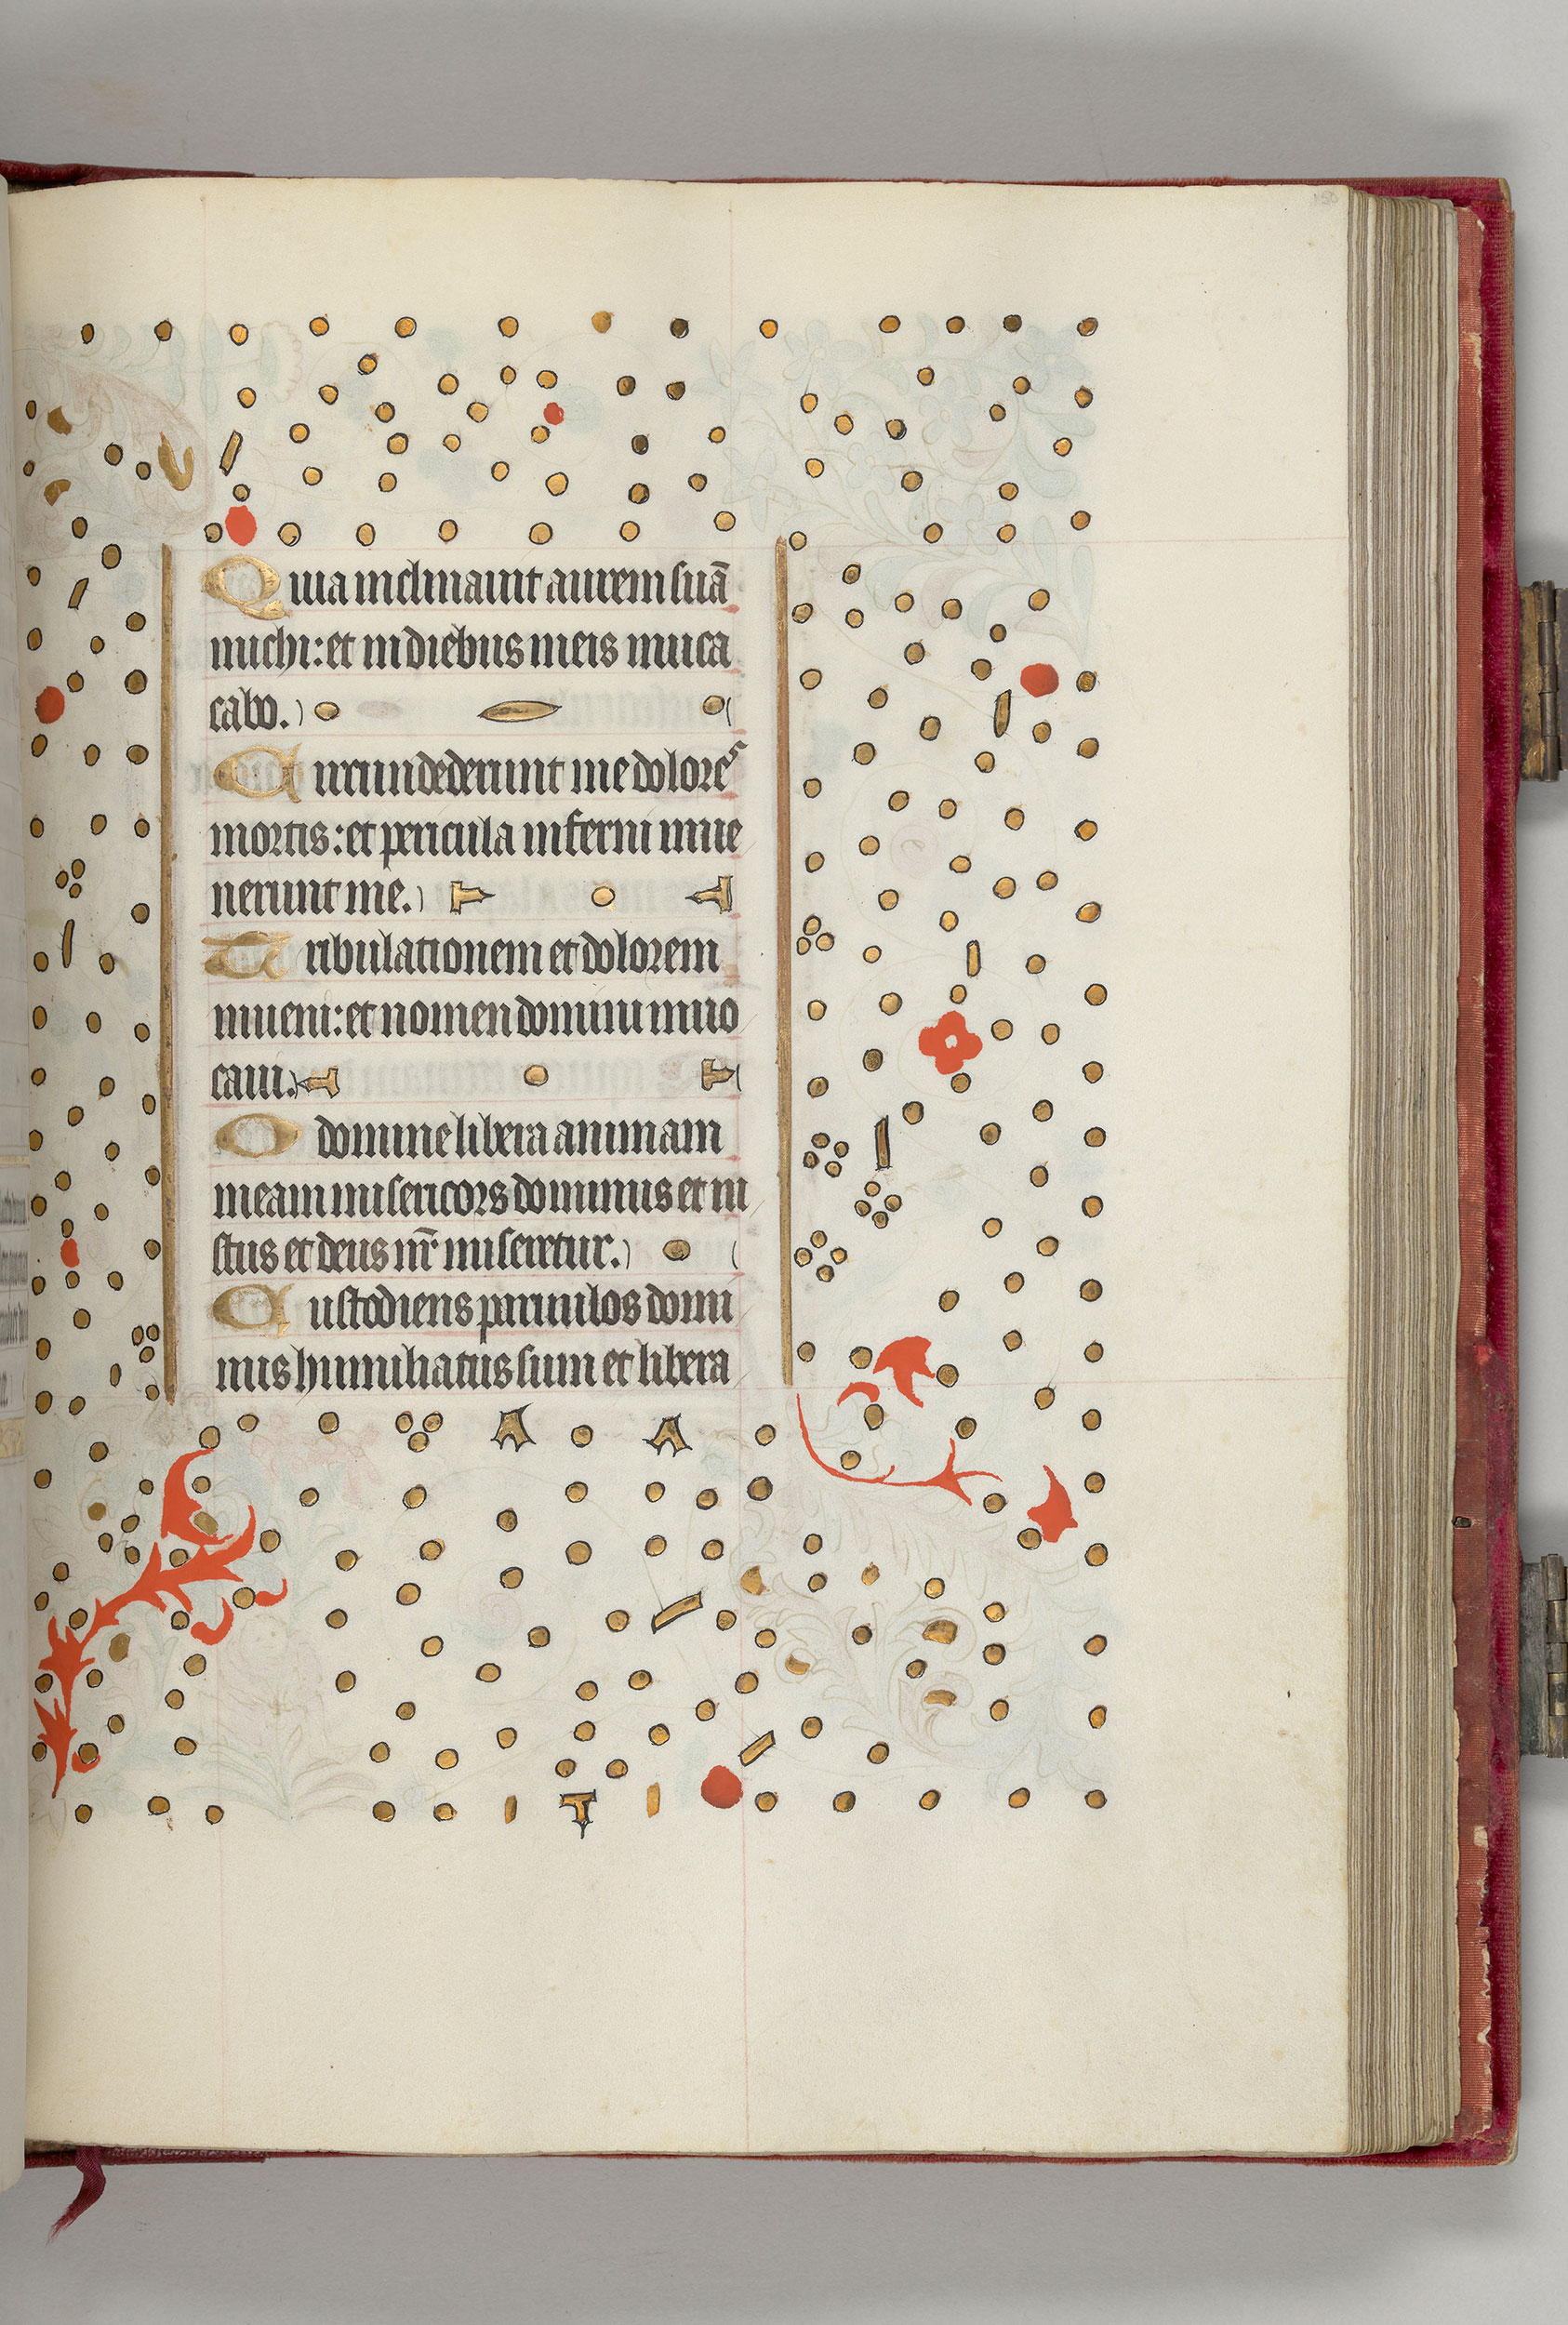 Quia inclinauit aurem suā
michi: et in diebus meis inuca
cabo.
Circundederunt me dolores
mortis: et pericula inferni inue
nerunt me.
Tribulationem et dolorem
inueni: et nomen domini inuo
caui.
O domine libera animam
meam misericors dominus et iu
stus et deus nr̄ miseretur.
Custodiens paruulos domi
nus humiliatus sum et libera